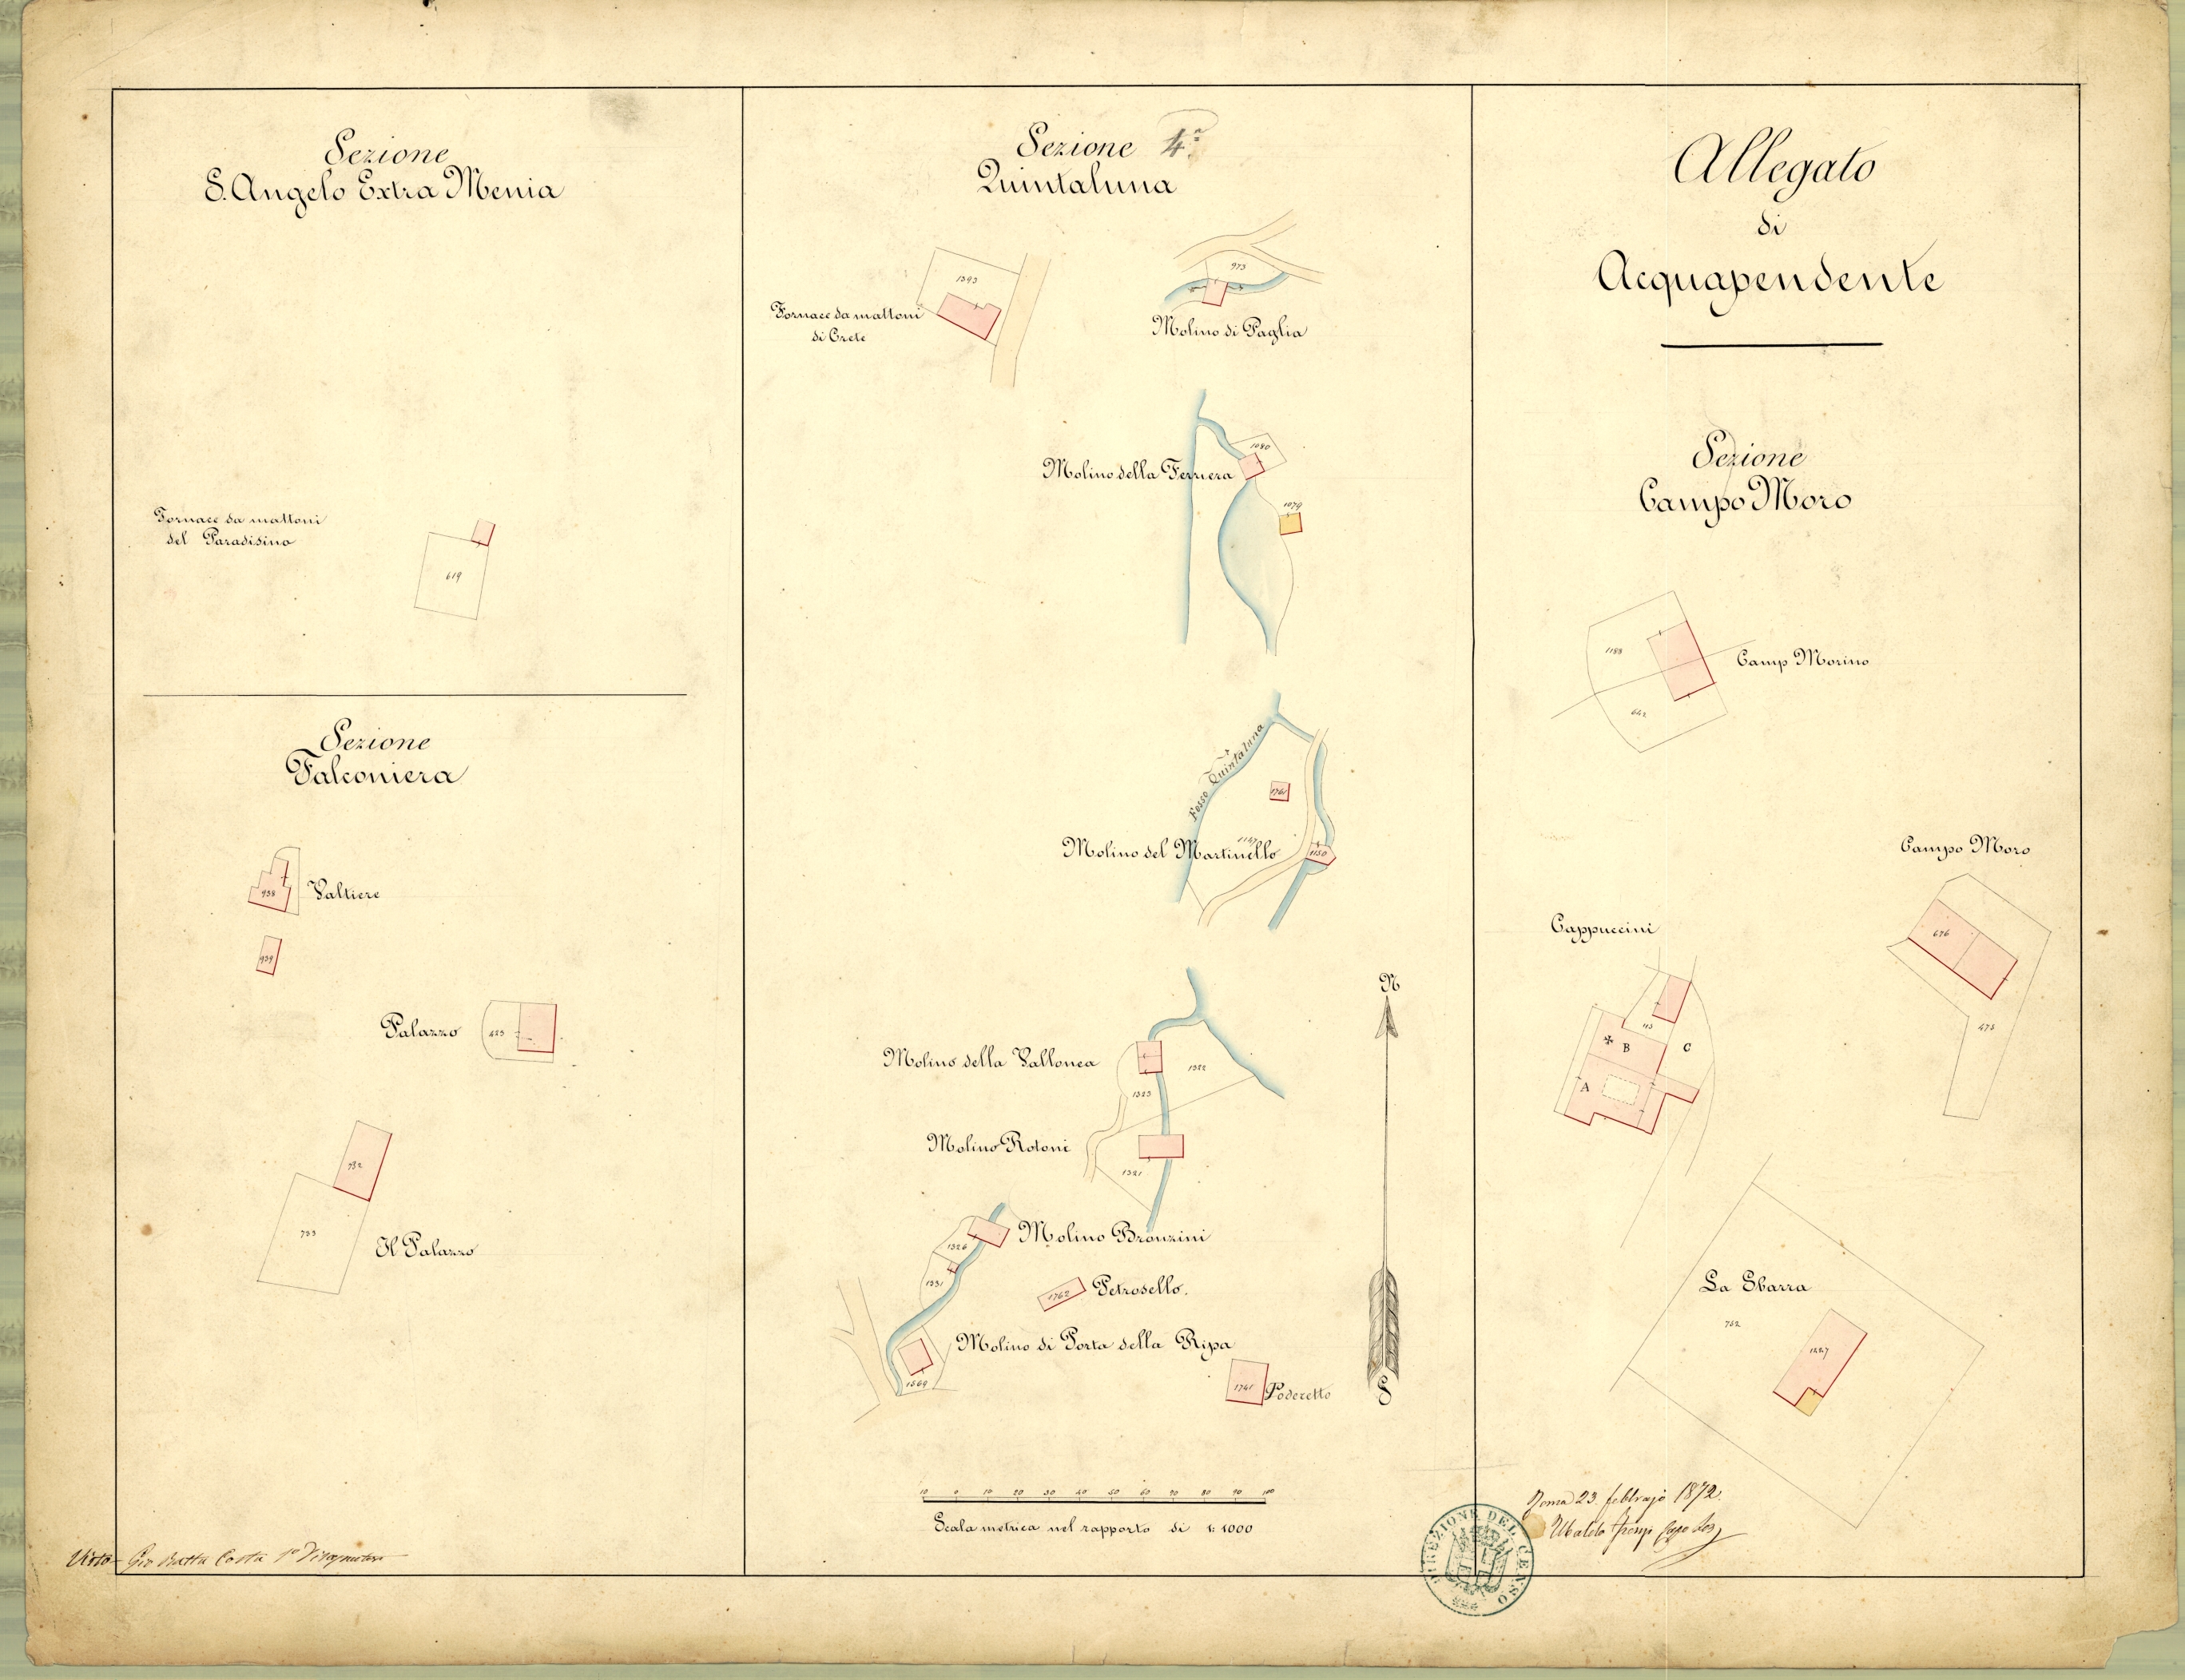 Sezione
S. Angelo Extra Menia
Fornace da mattoni
del Paradisino
619
Sezione
Falconiera
938
Valtiere
939
Palazzo
425
732
733
Il Palazzo
Visto Gio Batta Costa 1º
Sezione 4ª
Quintaluna
1393
Fornace da mattoni
di Crete
973
Molino di Paglia
1080
Molino della Ferriera
1079
Fosso Quintaluna
1761
1147
Molino del Martinello
1150
N
Molino della Vallonea
1322
1323
Molino Rotoni
1321
Molino Bronzini
1326
1331
1762
Petrosello.
Molino di Porta della Ripa
1369
1741
Poderetto
S
10 0 10 20 30 40 50 60 70 80 90 100
Scala metrica nel rapporto di 1:1000
Allegato
di
Acquapendente
Sezione
Campo Moro
1188
Camp Morino
642
Campo Moro
676
475
Cappuccini
113
B
C
A
La Sbarra
762
1227
Roma 23 febbrajo 1872.
Ubaldo
DIREZIONE DEL CENSO